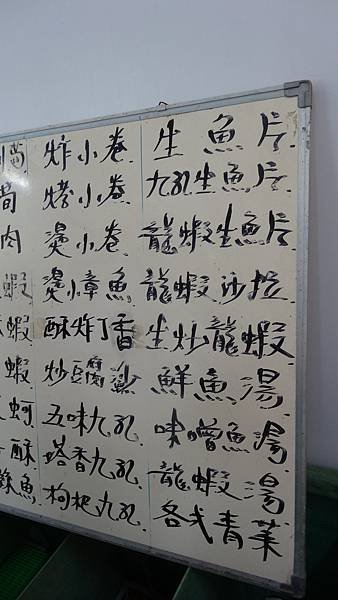 生魚片
九孔生魚片
龍蝦生魚片
龍蝦沙拉
生炒龍蝦
鮮魚湯
味噌魚湯
龍蝦湯
各式青菜
炸小卷
烤小卷
燙小卷
燙小章魚
酥炸丁香
炒豆腐鯊
五味九孔
塔香九孔
枸杞九孔
肉
蝦
蝦
蝦
蚵
酥
魚